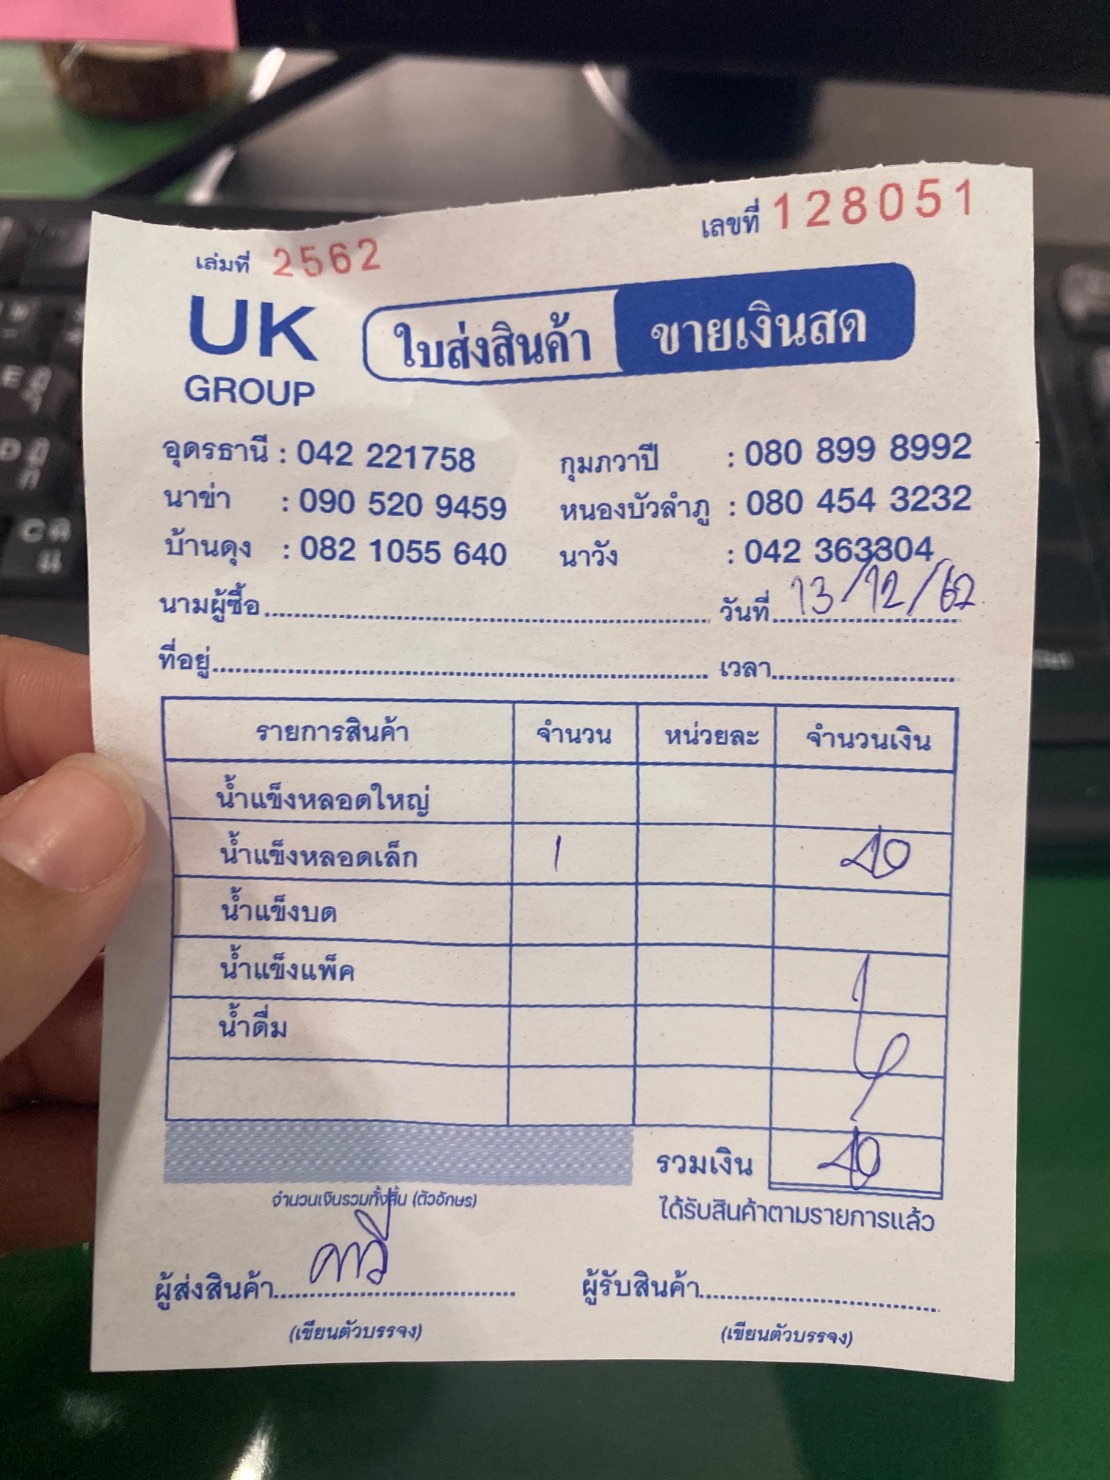 เล่มที่ 2562 เลขที่ 128051
UK GROUP ใบส่งสินค้า ขายเงินสด
อุดรธานี : 042 221758 กุมภวาปี : 080 899 8992
นาข่า : 090 520 9459 หนองบัวลำภู : 080 454 3232
บ้านดุง : 082 1055 640 นาวัง : 042 363304
นามผู้ซื้อ วันที่ 13/12/62
ที่อยู่ เวลา
รายการสินค้า จำนวน หน่วยละ จำนวนเงิน
น้ำแข็งหลอดใหญ่
น้ำแข็งหลอดเล็ก 1 40
น้ำแข็งบด
น้ำแข็งแพ็ค
น้ำดื่ม
รวมเงิน 40
จำนวนเงินรวมทั้งสิ้น (ตัวอักษร) ได้รับสินค้าตามรายการแล้ว
ผู้ส่งสินค้า ผู้รับสินค้า
(เขียนตัวบรรจง) (เขียนตัวบรรจง)